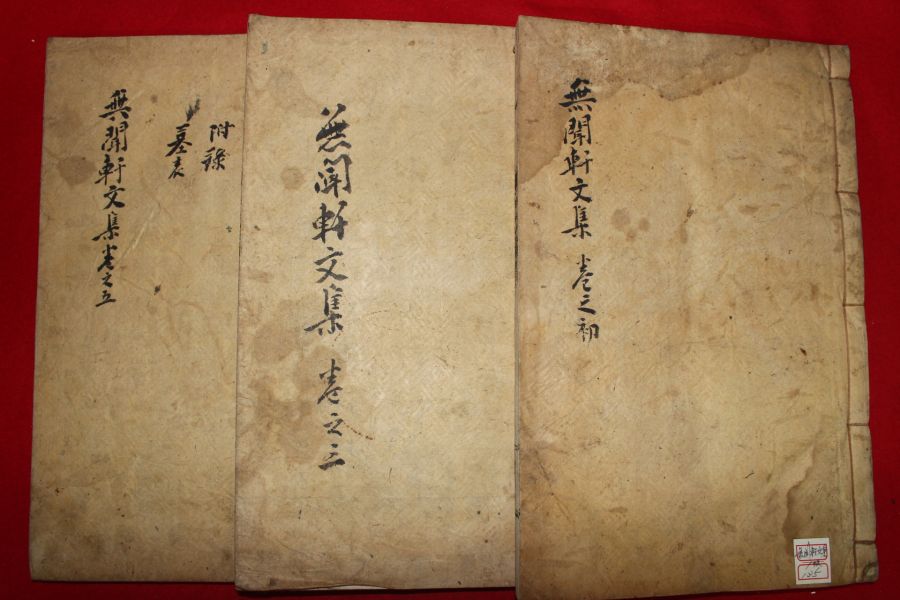 無聞軒文集 卷之初
無聞軒文集 卷之三
附錄
墓表
無聞軒文集卷之五